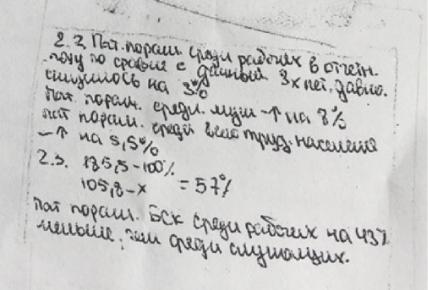 2.2. Пат. пораж. среди рабочих в отчетн.
году по сравн с данный 3х лет. давно.
снизилось на 3%
Пат. пораж. среди. муж - ↑ на 8%
пат пораж. среди всего труд. населения
- ↑ на 5,5%
2.3. 185,5 - 100%
105,8 - x = 57%
Пат пораж. БСК среди рабочих на 43%
меньше, чем среди служащих.